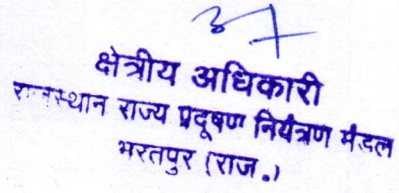 क्षेत्रीय अधिकारी
राजस्थान राज्य प्रदूषण नियंत्रण मंडल
भरतपुर (राज.)